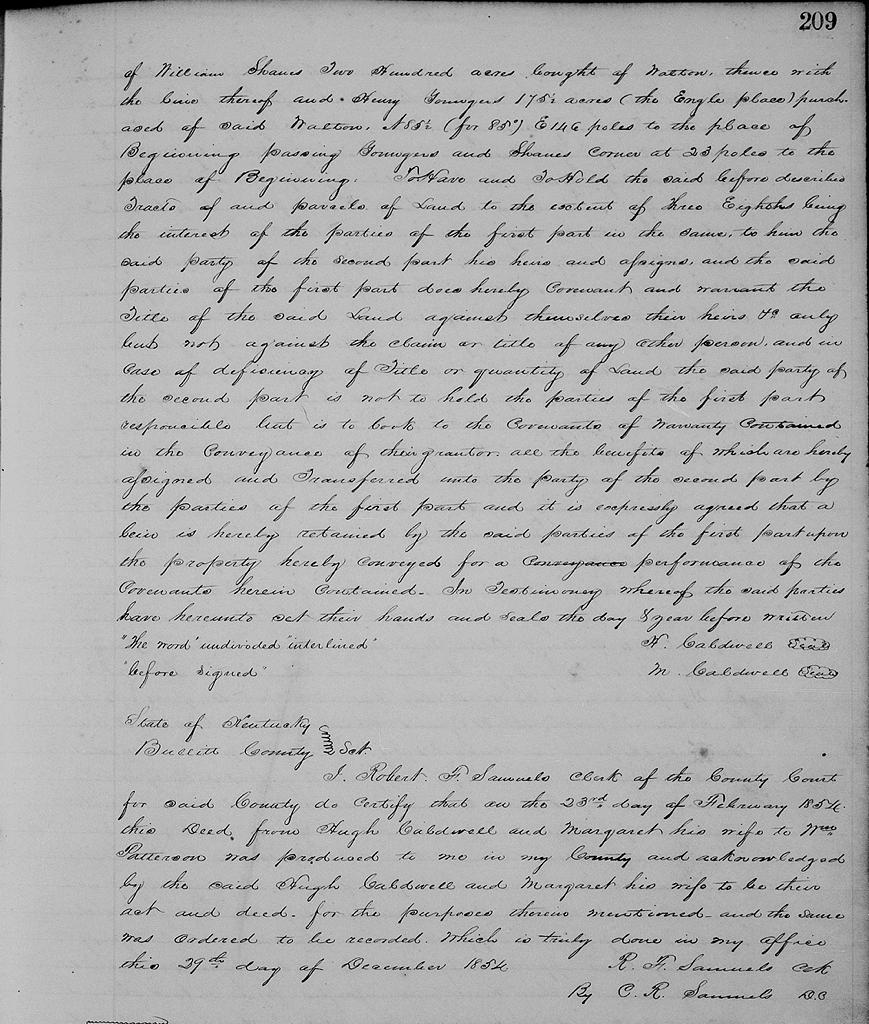 209
of William Shanes Two Hundred acres bought of Walton, thence with
the line thereof and Henry Youngers 175½ acres (the Engle place) purch-
ased of said Walton, N85½ (for 85°) E146 poles to the place of
Beginning passing Youngers and Shanes corner at 23 poles to the
place of Beginning. To Have and To Hold the said before described
Tracts of and parcels of Land to the extent of Three Eighths being
the interest of the parties of the first part in the same, to him the
said party of the second part his heirs and assigns, and the said
parties of the first part does hereby Covenant and warrant the
Title of the said Land against themselves their heirs &c only
but not against the claim or title of any other person, and in
case of deficiency of Title or quantity of Land the said party of
the second part is not to hold the parties of the first part
responcible but is to look to the Covenants of Warranty Contained
in the Conveyance of their grantor, all the benefits of which are hereby
assigned and Transferred unto the party of the second part by
the parties of the first part and it is expressly agreed that a
lein is hereby retained by the said parties of the first part upon
the property hereby conveyed for a Conveyance performance of the
Covenants herein Contained. In Testimoney whereof the said parties
have hereunto set their hands and seals the day & year before written
"The word "undivided" interlined" H. Caldwell Seal
"before signed" M. Caldwell Seal
State of Kentucky
Bullitt County Sct.
I. Robert. F. Samuels Clerk of the County Court
for said County do certify that on the 23rd day of February 1854.
this Deed from Hugh Caldwell and Margaret his wife to Wm
Patterson was produced to me in my County and acknowledged
by the said Hugh Caldwell and Margaret his wife to be their
act and deed. for the purposes therein mentioned and the same
was ordered to be recorded. Which is truly done in my office
this 29th day of December 1854 R. F. Samuels Clk
By C. R. Samuels D.C